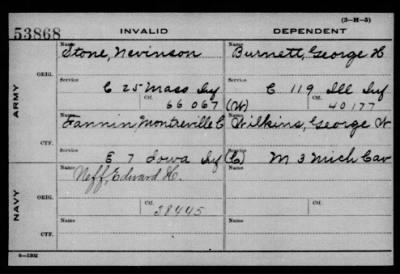 (3-H-5)
53868 INVALID DEPENDENT
Name Name
Stone, Nevinson Burnett, George H
ORIG. Service Service
C 25 Mass Inf E 119 Ill Inf
Ctf. Ctf.
66067 (W) 40177
ARMY
Name Name
Fannin, Montreville C Wilkins, George W
CTF. Service Service
E 7 Iowa Inf (C) M 3 Mich Cav
Name Name
Neff, Edward H.
ORIG.
Ctf. Ctf.
38445
NAVY
Name Name
CTF.